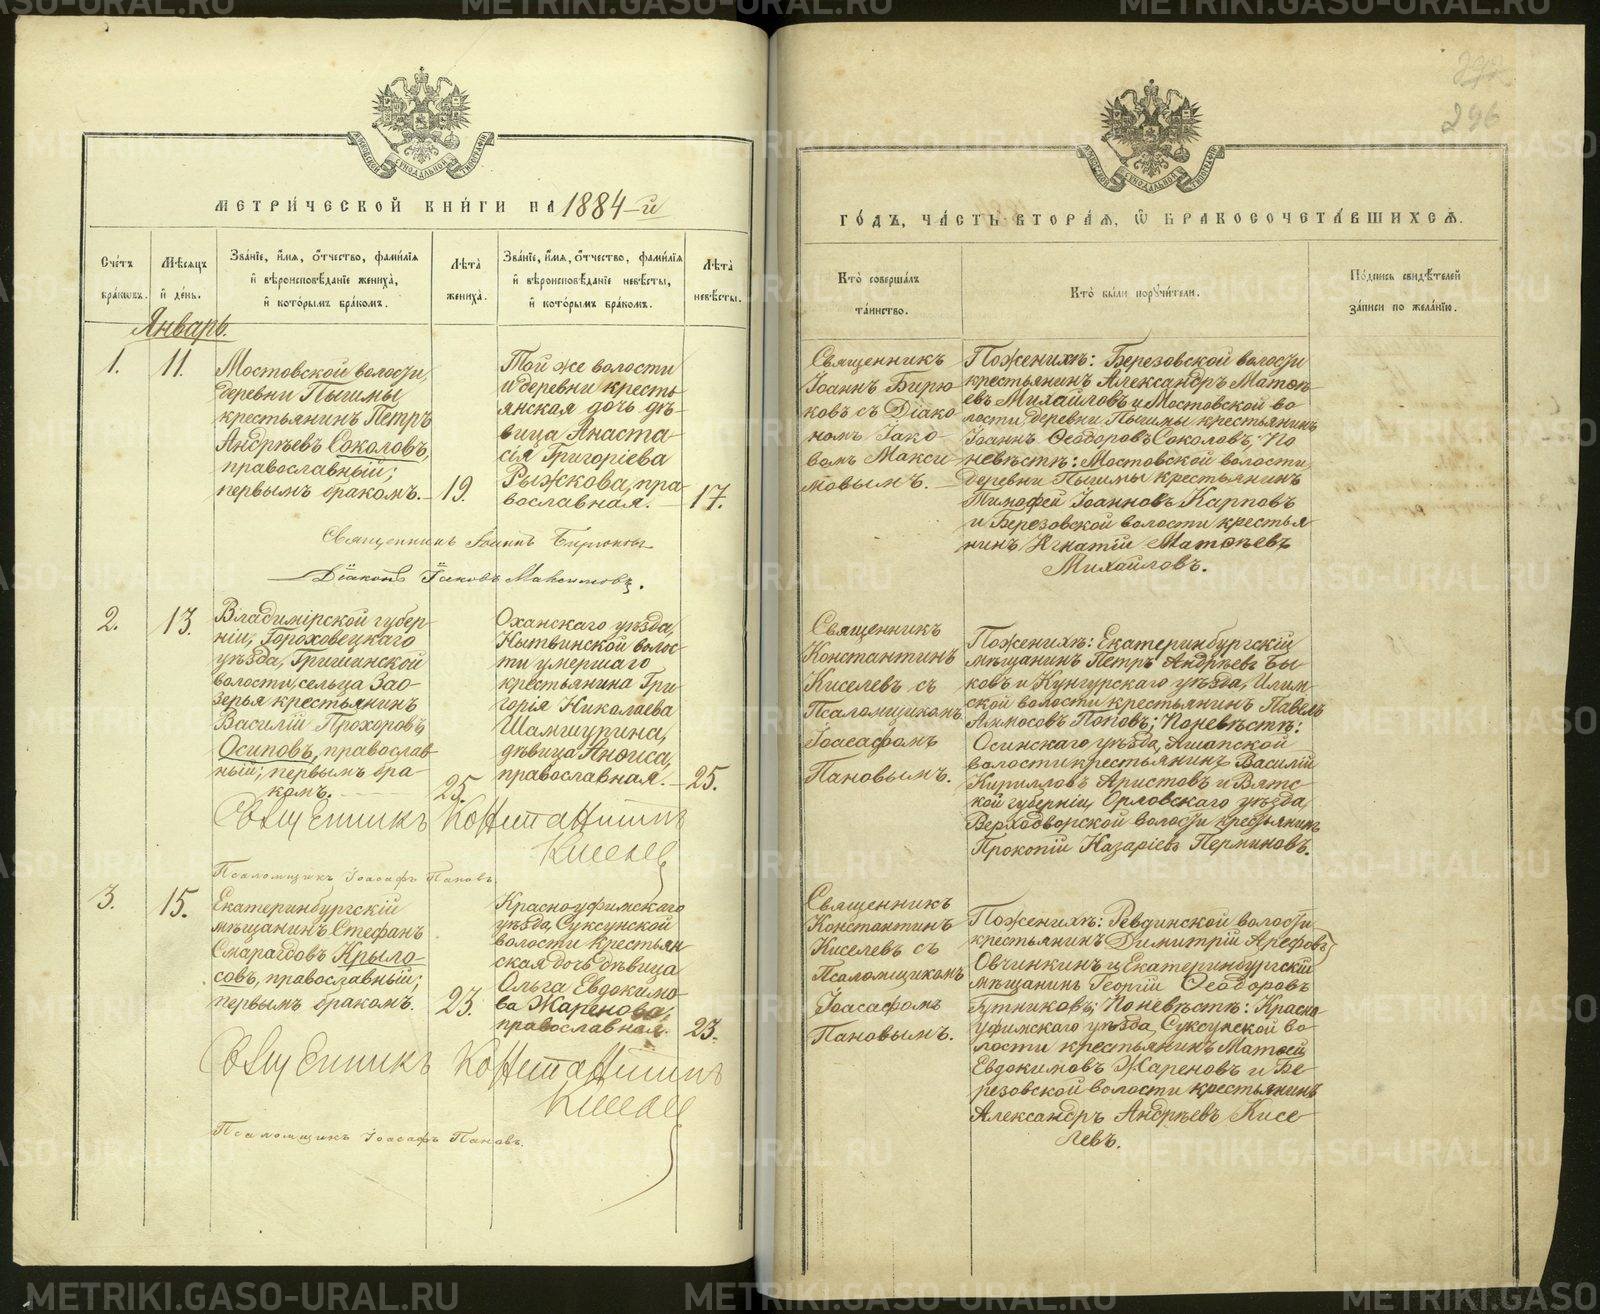 МЕТРИЧЕСКОЙ КНИГИ НА 1884-й
Счетъ браковъ.
Мѣсяцъ и день.
Званіе, имя, отчество, фамилія и вѣроисповѣданіе жениха, и которымъ бракомъ.
Лѣта жениха.
Званіе, имя, отчество, фамилія и вѣроисповѣданіе невѣсты, и которымъ бракомъ.
Лѣта невѣсты.
Январь.
1.
11.
Мостовской волости,
деревни Пышмы
крестьянинъ Петръ
Андреевъ Соколовъ,
православный;
первымъ бракомъ.
19.
Той же волости
и деревни кресть
янская дочь дѣ-
вица Анаста-
сія Григоріева
Рыжкова, пра-
вославная.
17.
Священникъ Іоаннъ Бирюковъ
Діаконъ Іаковъ Максимовъ.
2.
13.
Владимірской губер-
ніи, Гороховецкаго
уѣзда, Гришинской
волости, сельца Зао-
зерья крестьянинъ
Василій Прохоровъ
Осиповъ, православ-
ный; первымъ бра-
комъ.
25.
Оханскаго уѣзда,
Нытвинской волос-
ти умершаго
крестьянина Гри-
горія Николаева
Шамшурина,
дѣвица Анѳиса,
православная.
25.
Священникъ Константинъ
Киселев
Псаломщикъ Іоасафъ Пановъ.
3.
15.
Екатеринбургскій
мѣщанинъ Стефанъ
Смарагдовъ Крыло-
совъ, православный;
первымъ бракомъ.
23.
Красноуфимскаго
уѣзда, Суксунской
волости крестьян-
ская дочь дѣвица
Ольга Евдокимо-
ва Жаренова,
православная.
23.
Священникъ Константинъ
Киселев
Псаломщикъ Іоасафъ Пановъ.
296
ГОДЪ, ЧАСТЬ ВТОРАЯ, Ѡ БРАКОСОЧЕТАВШИХСЯ.
Кто совершалъ таинство.
Кто были поручители.
Подпись свидѣтелей записи по желанію.
Священникъ
Іоаннъ Бирю-
ковъ съ Діако
номъ Іако-
вомъ Макси
мовымъ.
По женихѣ: Березовской волости
крестьянинъ Александръ Матѳѣ-
евъ Михайловъ и Мостовской во
лости деревни Пышмы крестьянинъ
Іоаннъ Ѳеодоровъ Соколовъ; по
невѣстѣ: Мостовской волости,
деревни Пышмы крестьянинъ
Тимофей Іоанновъ Карповъ
и Березовской волости крестья
нинъ Игнатій Матѳѣевъ
Михайловъ.
Священникъ
Константинъ
Киселевъ съ
Псаломщикомъ
Іоасафомъ
Пановымъ.
По женихѣ: Екатеринбургскій
мѣщанинъ Петръ Андрѣевъ Бы-
ковъ и Кунгурскаго уѣзда, Илим-
ской волости крестьянинъ Павелъ
Аммосовъ Поповъ; по невѣстѣ:
Осинскаго уѣзда, Ашапской
волости крестьянинъ Василій
Кирилловъ Аристовъ и Вятс-
кой губерніи, Орловскаго уѣзда,
Верходворской волости крестьянинъ
Прокопій Назаріевъ Перминовъ.
Священникъ
Константинъ
Киселевъ съ
Псаломщикомъ
Іоасафомъ
Пановымъ.
По женихѣ: Ревдинской волости
крестьянинъ Димитрій Арефовъ
Овчинкинъ и Екатеринбургскій
мѣщанинъ Георгій Ѳеодоровъ
Гутниковъ; по невѣстѣ: Красно
уфимскаго уѣзда, Суксунской во-
лости крестьянинъ Матѳей
Евдокимовъ Жареновъ и Бе-
резовской волости крестьянинъ
Александръ Андрѣевъ Кисе-
левъ.
METRIKI.GASO-URAL.RU